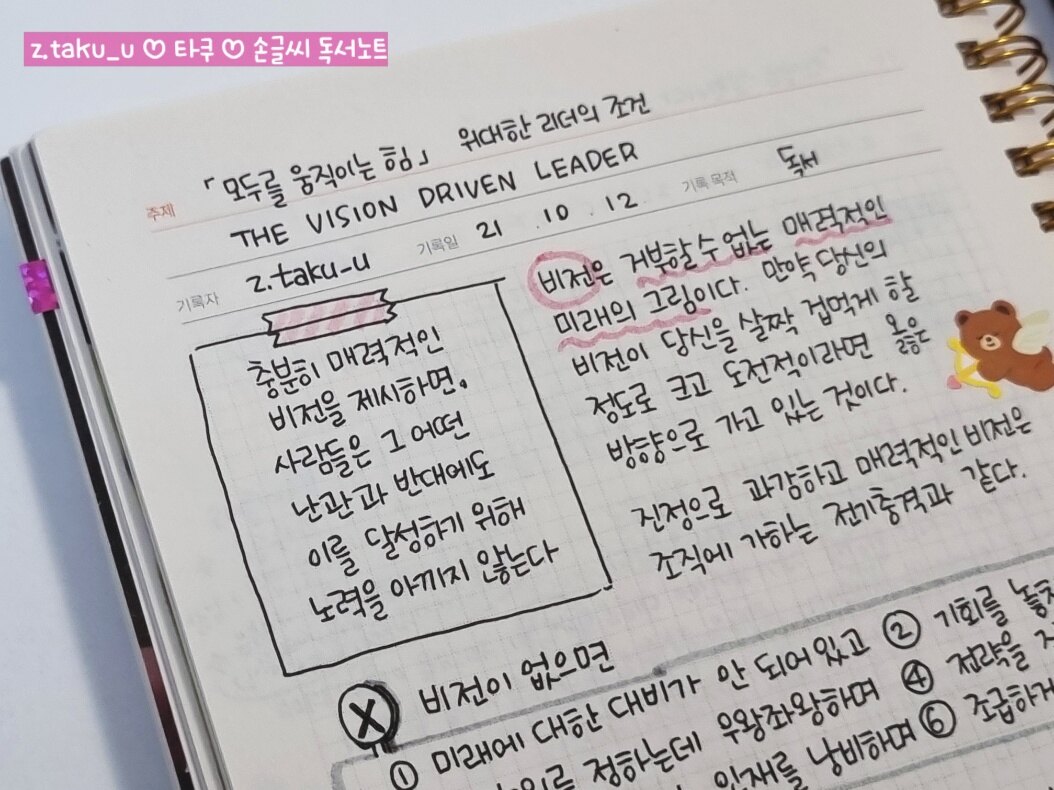 z.taku_u ♡ 타쿠 ♡ 손글씨 독서노트
주제 「모두를 움직이는 힘」 위대한 리더의 조건
THE VISION DRIVEN LEADER
기록자 z.taku_u 기록일 21 . 10 . 12 기록 목적 독서
충분히 매력적인
비전을 제시하면.
사람들은 그 어떤
난관과 반대에도
이를 달성하기 위해
노력을 아끼지 않는다
비전은 거부할 수 없는 매력적인
미래의 그림이다. 만약 당신의
비전이 당신을 살짝 겁먹게 할
정도로 크고 도전적이라면 옳은
방향으로 가고 있는 것이다.
진정으로 과감하고 매력적인 비전은
조직에 가하는 전기충격과 같다.
X 비전이 없으면
① 미래에 대한 대비가 안 되어있고 ② 기회를
정하는데 우왕좌왕하며 ④ 전략을
인재를 낭비하며 ⑥ 조급하게